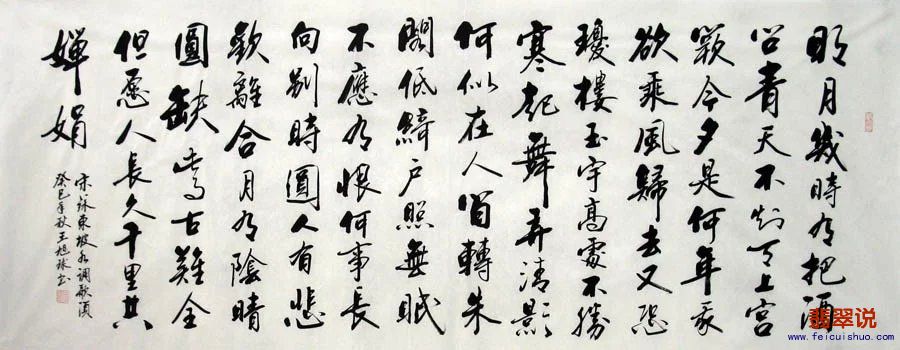 明月幾時有把酒
問青天不知天上宮
闕今夕是何年我
欲乘風歸去又恐
瓊樓玉宇高處不勝
寒起舞弄清影
何似在人間轉朱
閣低綺户照無眠
不應有恨何事長
向别時圓人有悲
歡離合月有陰晴
圓缺此事古難全
但愿人長久千里共
嬋娟
宋蘇東坡水调歌頭
癸巳年秋王旭球书
翡翠说
www.feicuishuo.com